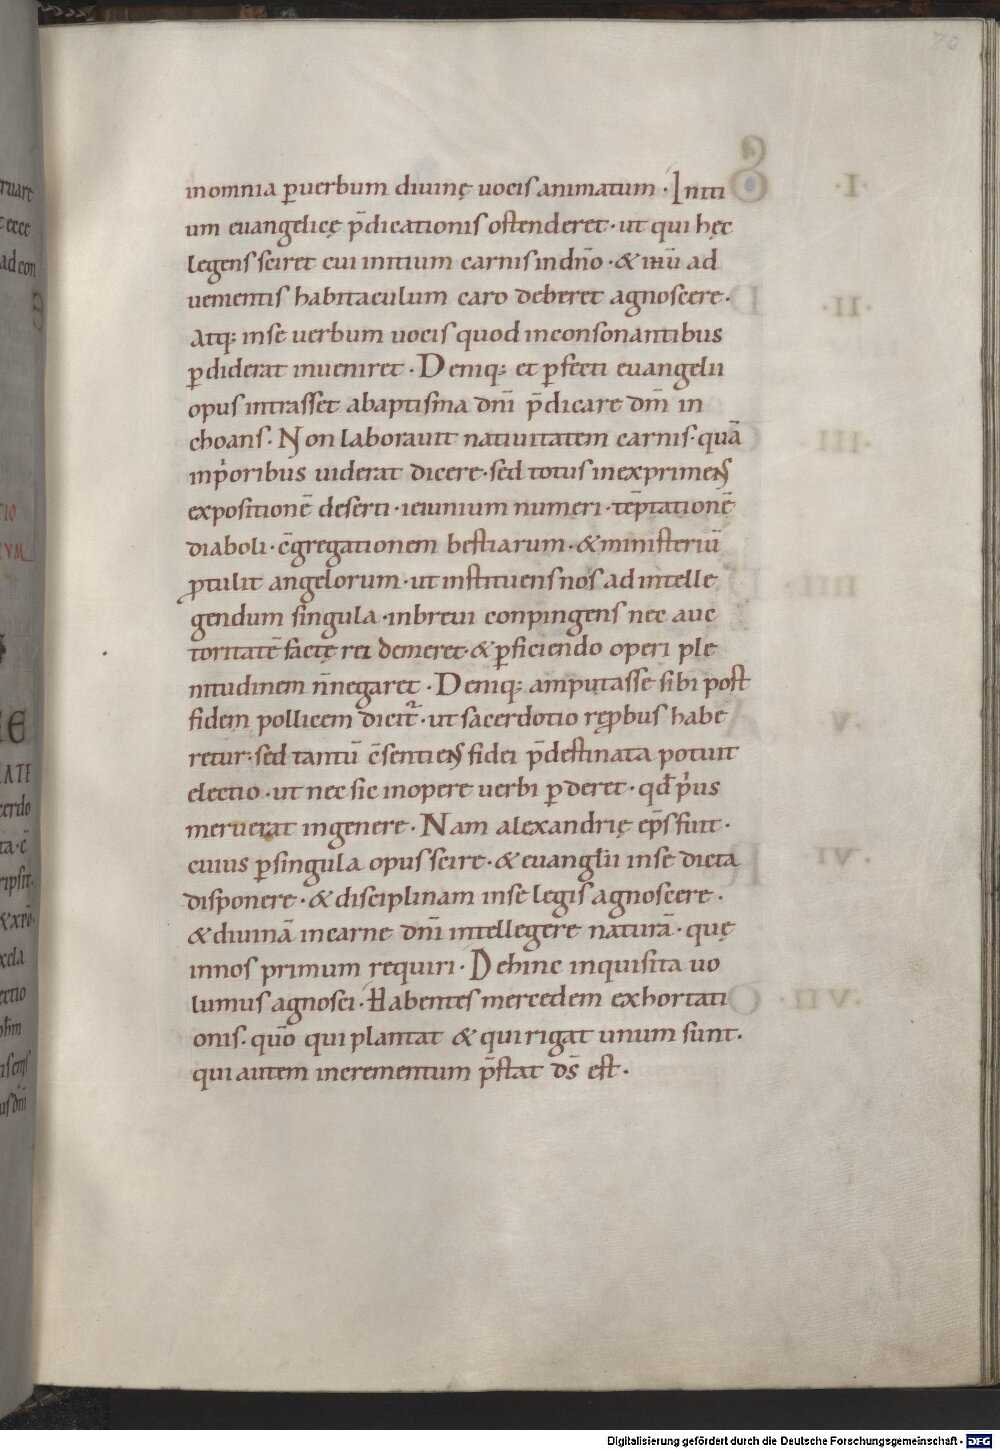 70
inomnia ꝑuerbum diuinę uocis animatum · Initi
um euangelicę p̄dicationis ostenderet · ut qui hęc
legens sciret cui initium carnis indn̄o · & ihū ad
uenientis habitaculum caro deberet agnoscere ·
Atq; inse uerbum uocis quod inconsonantibus
ꝑdiderat inueniret · Deniq; et ꝑfecti euangelii
opus intrasset abaptisma dn̄i p̄dicare dm̄ in
choans · Non laborauit natiuitatem carnis · quā
inp̍oribus uiderat dicere · sed totus inexprimens
expositionē deserti · ieiunium numeri · tēptationē
diaboli · c̄gregationem bestiarum · & ministeriū
ꝓtulit angelorum · ut instituens nos ad intelle
gendum singula · inbreui conpingens nec auc
toritatē factę rei demeret · & ꝑficiendo operi ple
nitudinem n̄negaret · Deniq; amputasse sibi post
fidem pollicem dicit᷑ · ut sacerdotio reꝓbus habe
retur · sed tantū c̄sentiens fidei p̄destinata potuit
electio · ut nec sic inopere uerbi ꝑderet · qd̄ p̍us
meruerat ingenere · Nam alexandrię ep̄s fuit ·
cuius ꝑsingula opus scire · & euangl̄ii inse dicta
disponere · & disciplinam inse legis agnoscere ·
& diuinā incarne dn̄i intellegere naturā · quę
innos primum requiri · Dehinc inquisita uo
lumus agnosci · Habentes mercedem exhortati
onis · quō qui plantat & qui rigat unum sunt ·
qui autem incrementum p̄stat ds̄ est ·
Digitalisierung gefördert durch die Deutsche Forschungsgemeinschaft - DFG